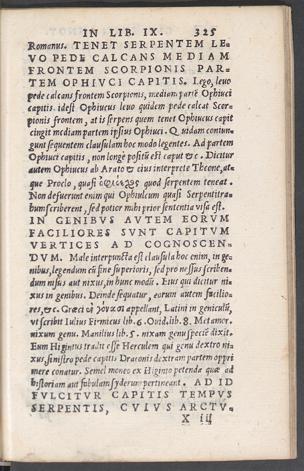 IN LIB. IX. 325
Romanus. TENET SERPENTEM LE-
VO PEDE CALCANS MEDIAM
FRONTEM SCORPIONIS PAR-
TEM OPHIVCI CAPITIS. Lego, leuo
pede calcans frontem Scorpionis, mediam partē Ophiuci
capitis. idest Ophiucus leuo quidem pede calcat Scor-
pionis frontem, at is serpens quem tenet Ophiucus caput
cingit mediam partem ipsius Ophiuci. Quidam coniun-
gunt sequentem clausulam hoc modo legentes. Ad partem
Ophiuci capitis, non longè positū est caput &c. Dicitur
autem Ophiucus ab Arato & eius interprete Theone, at-
que Proclo, quasi serpentem teneat.
Non defuerunt enim qui Ophiulcum quasi Serpentitra-
hum scriberent, sed potior mihi prior sententia visa est.
IN GENIBVS AVTEM EORVM
FACILIORES SVNT CAPITVM
VERTICES AD COGNOSCEN-
DVM. Male interpuncta est clausula hoc enim, in ge-
nibus, legendum cū fine superioris, sed pro nessus scriben-
dum nisus aut nixus, in hunc modū. Eius qui dicitur ni-
xus in genibus. Deinde sequatur, eorum autem facilio-
res, &c. Græci appellant, Latini in geniculū,
vt scribit Iulius Firmicus lib. 6. Ouid. lib. 8. Metamor.
nixum genu. Manilius lib. 5. nixam genu speciē dixit.
Eum Higinius tradit esse Herculem qui genu dextro ni-
xus, sinistro pede capitis Draconis dextram partem oppri
mere conatur. Semel moneo ex Higinio petenda quæ ad
historiam aut fabulam syderum pertineant. AD ID
FVLCITVR CAPITIS TEMPVS
SERPENTIS, CVIVS ARCTV-
X iij